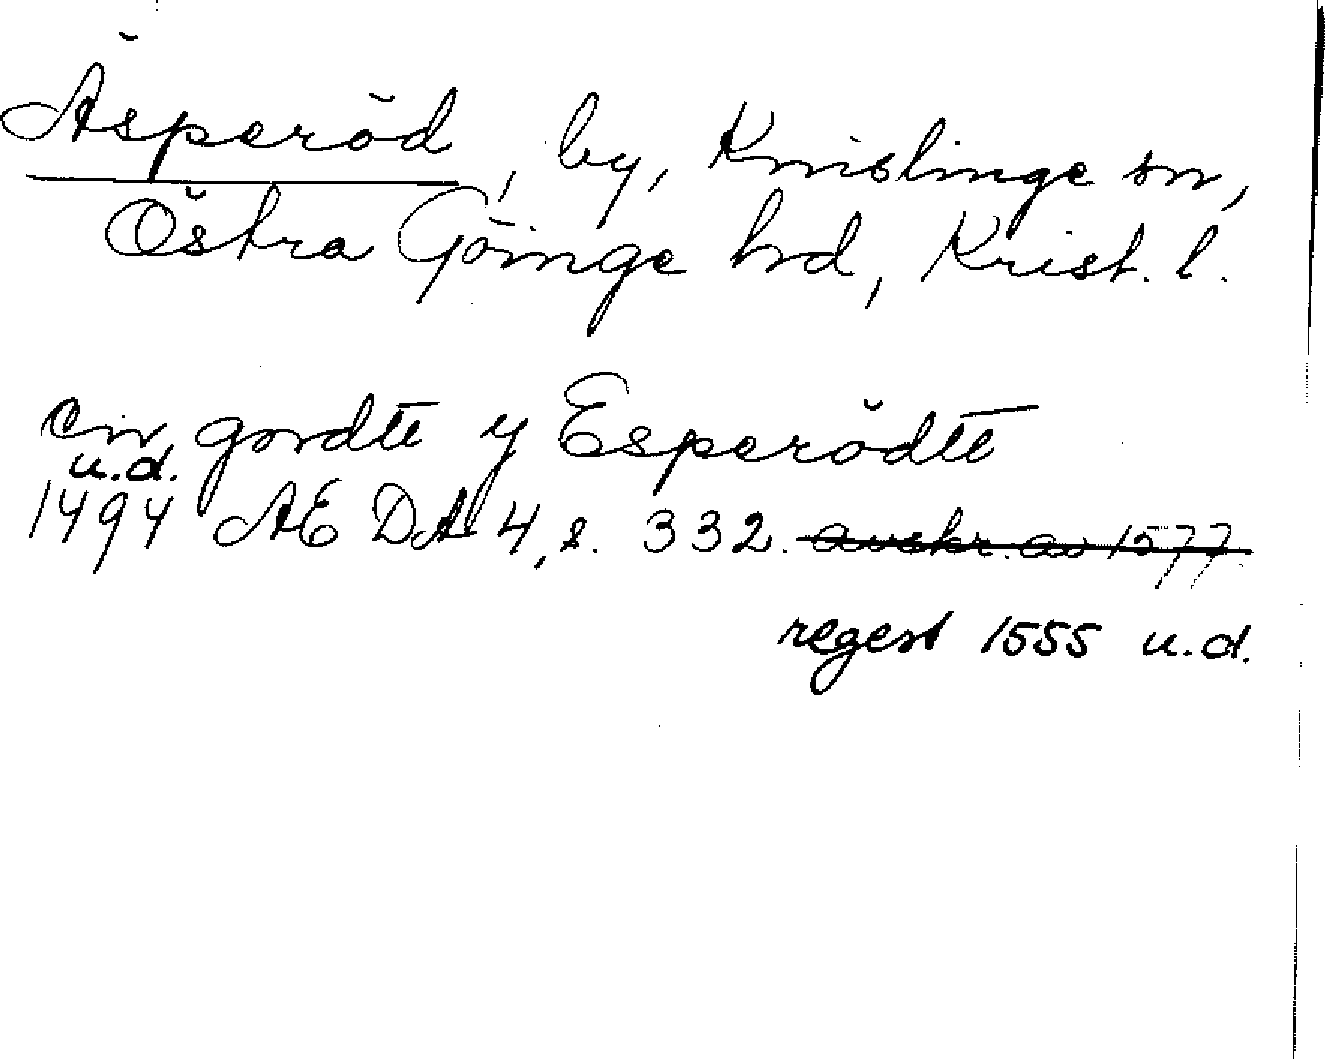 Äsperöd, by, Knislinge sn,
Östra Göinge hd, Krist. l.
en gordtt y Esperödtt
u.d.
1494 AE DA 4, s. 332. avskr. av 1577
regest 1555 u.d.